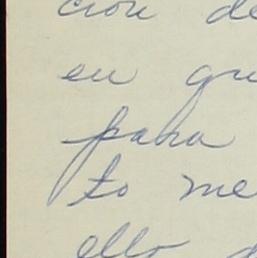 ción de
en qu
para
to me
ello d